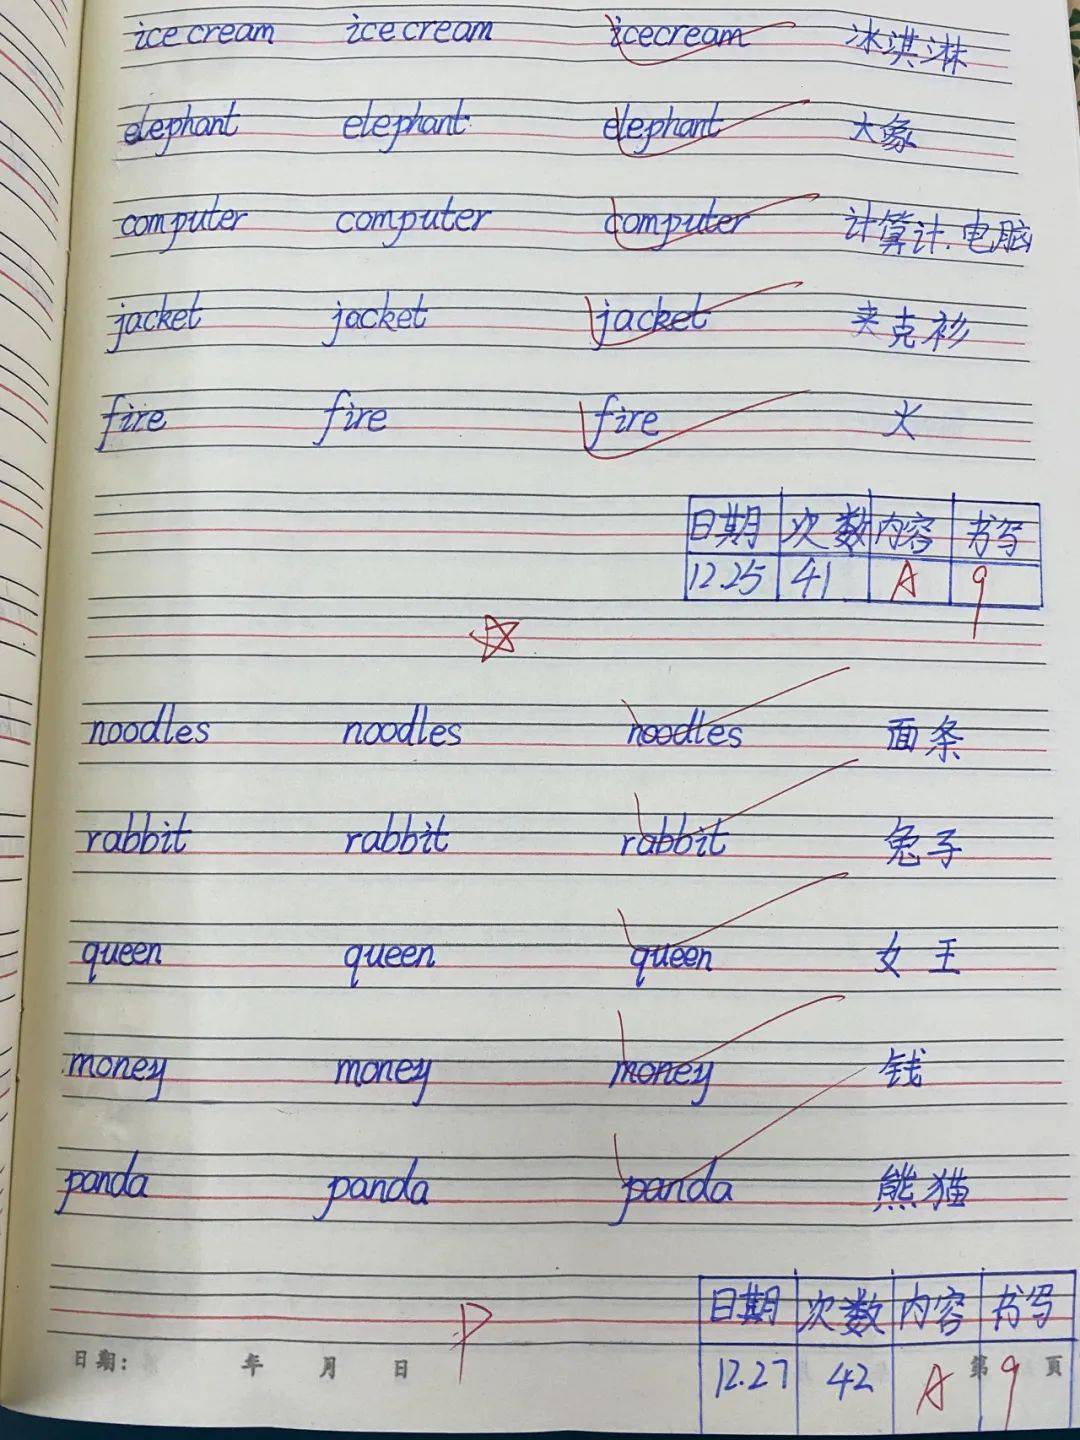 ice cream ice cream icecream 冰淇淋
elephant elephant elephant 大象
computer computer computer 计算计.电脑
jacket jacket jacket 夹克衫
fire fire fire 火
日期 次数 内容 书写
12.25 41 A 9
noodles noodles noodles 面条
rabbit rabbit rabbit 兔子
queen queen queen 女王
money money money 钱
panda panda panda 熊猫
日期 次数 内容 书写
日期: 年 月 日 第 頁
12.27 42 A 9